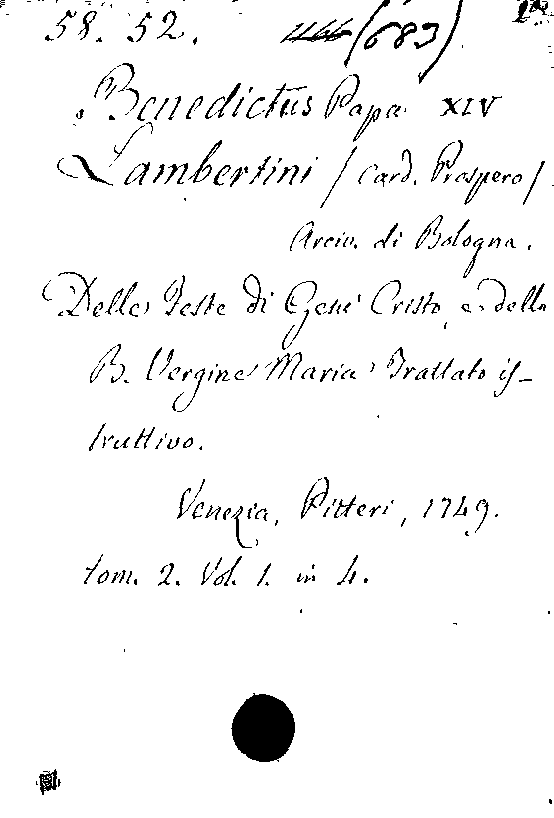 58. 52. (683)
Benedictus Papa XIV
Lambertini / Card. Prospero /
Arciv. di Bologna.
Delle Feste di Gesù Cristo, e della
B. Vergine Maria Trattato is-
truttivo.
Venezia, Pitteri, 1749.
tom. 2. Vol. 1. in 4.